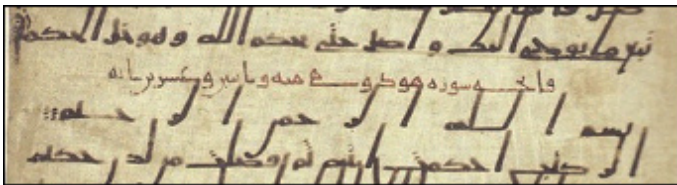 تبع ما يوحى اليك و اصبر حتى يحكم الله وهو خير الحكمين
فاتحه سوره هود وهي ميه وعشرين ايه
بسم الله الرحمن الرحيم
الر كتب احكمت ايته ثم فصلت من لدن حكيم